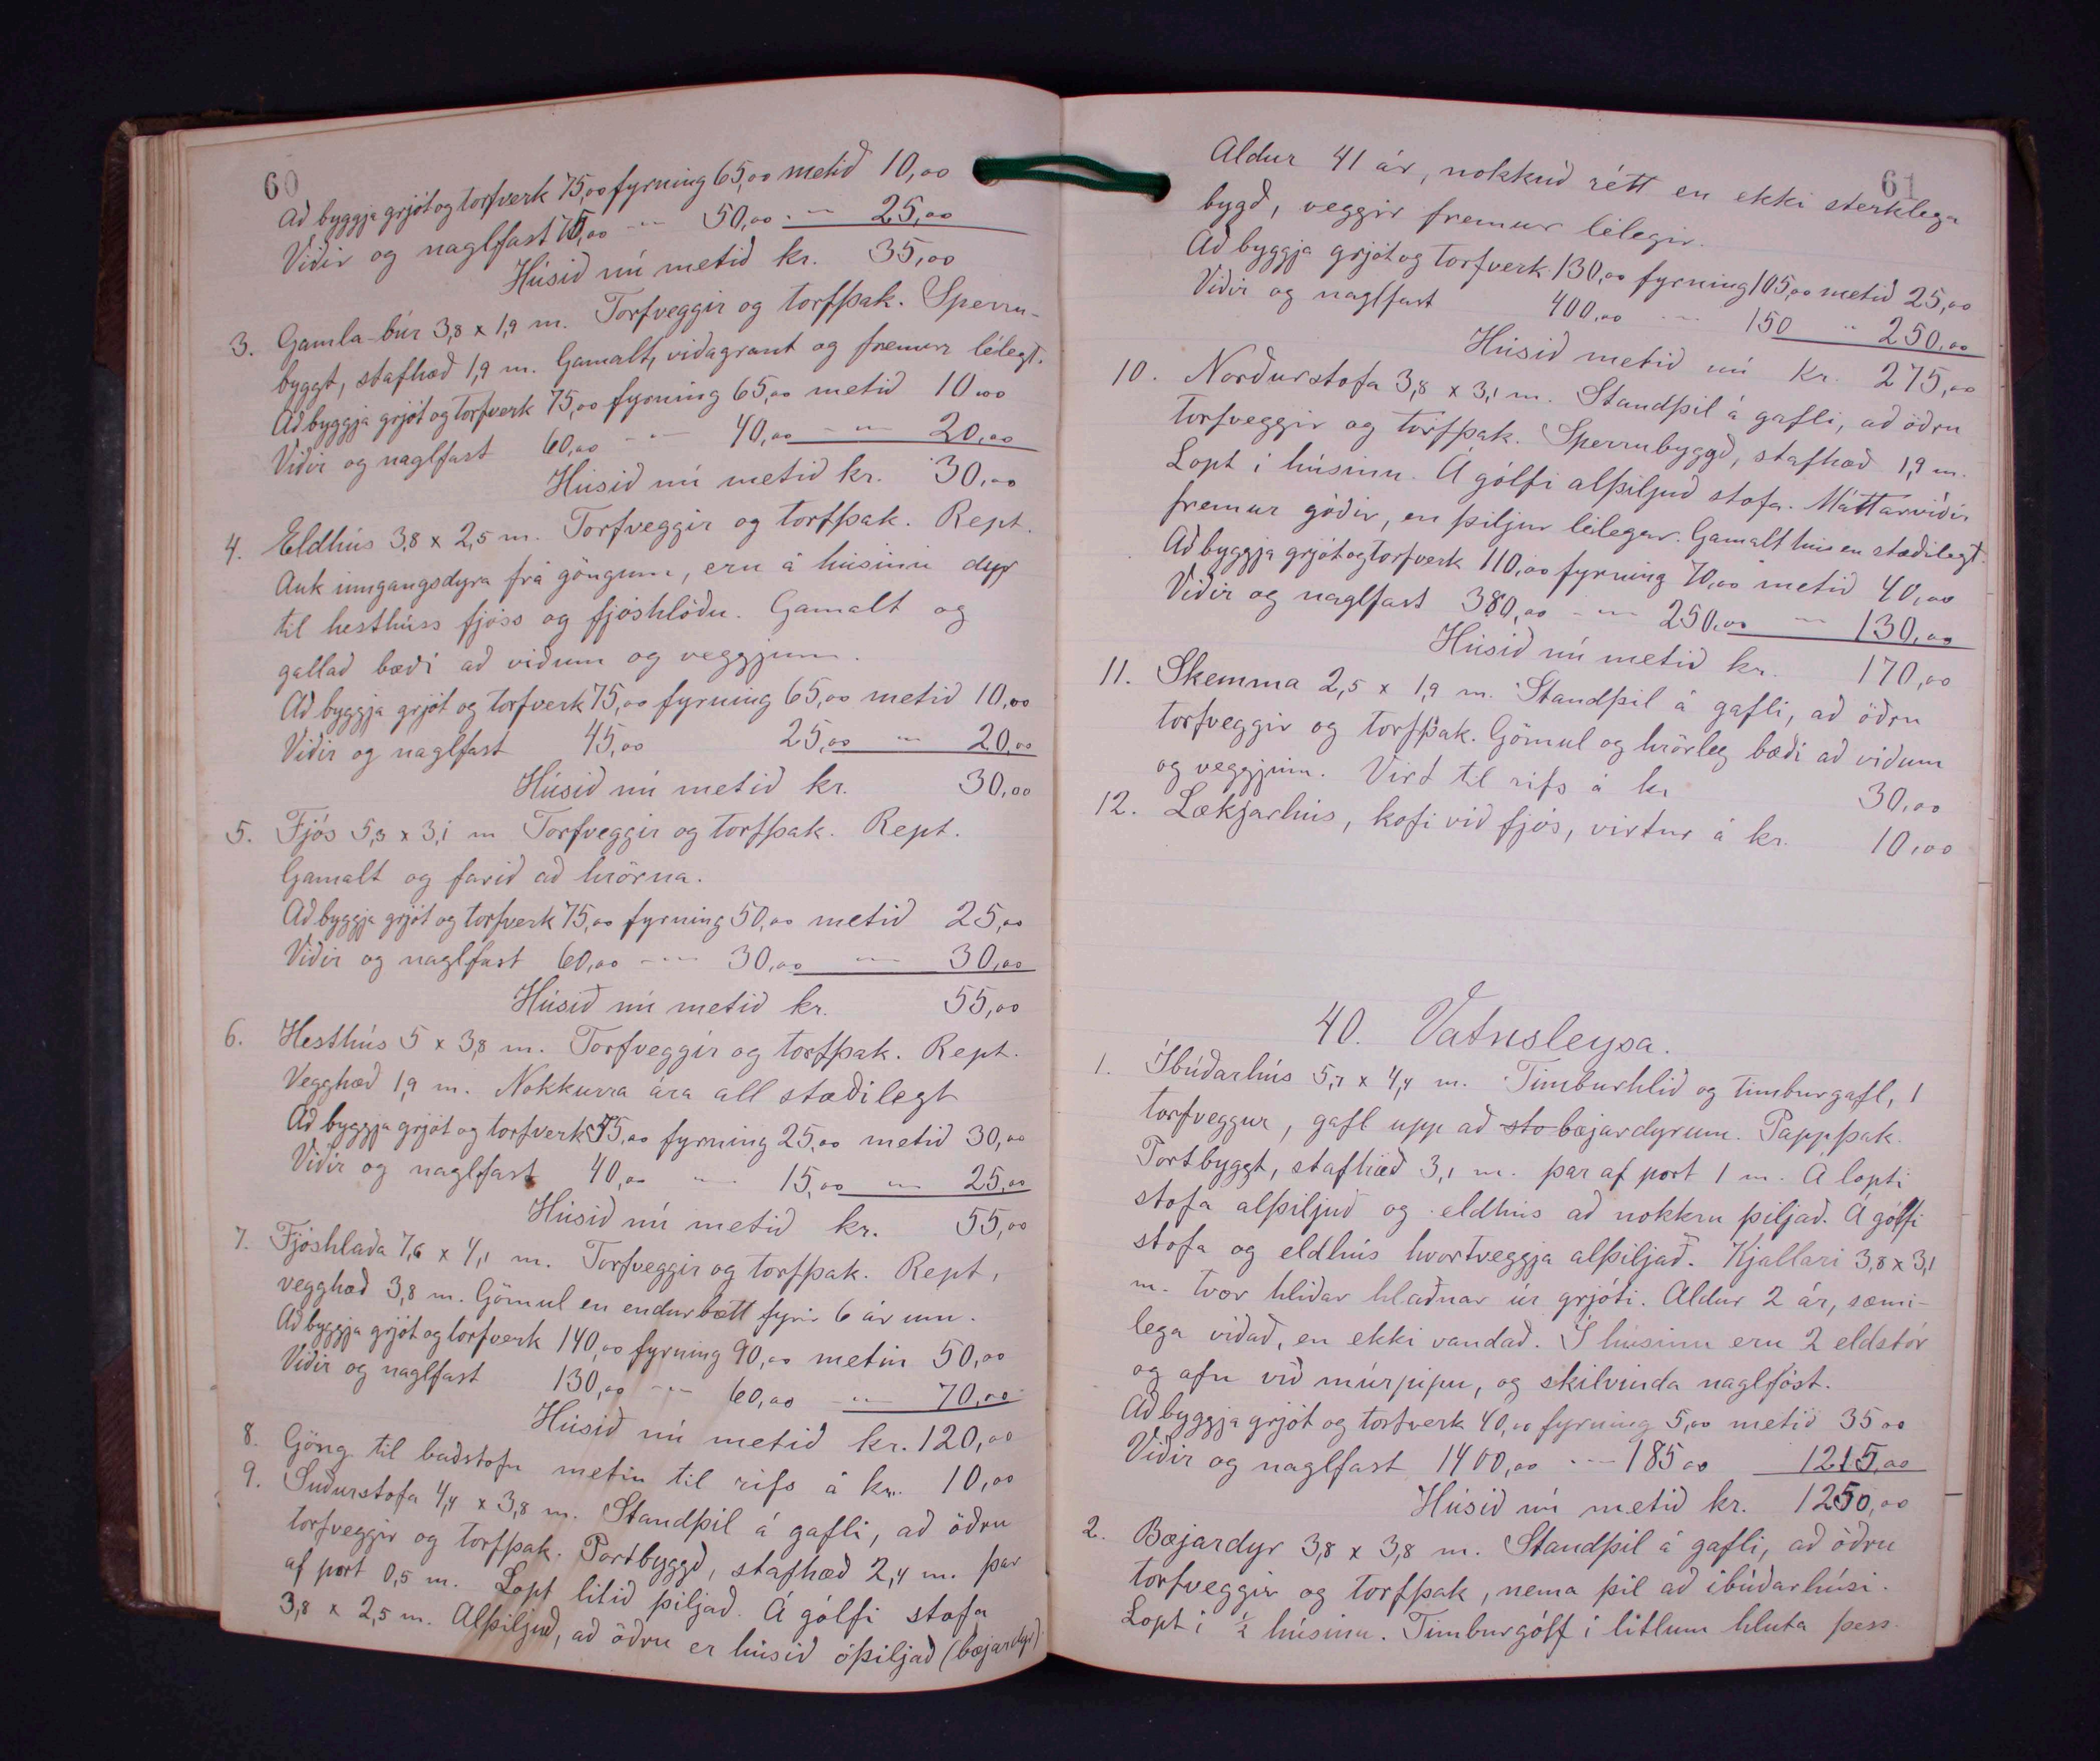 60
Að byggja grjót og torfverk 75,00 fyrning 65,00 metið 10,00
Viðir og naglfast 75,00 -"- 50,00 -"- 25,00
Húsið nú metið kr. 35,00
3. Gamla-búr 3,8 x 1,9 m. Torfveggir og torfþak. Sperru-
byggt, stafhæð 1,9 m. Gamalt, viðagrant og fremur lélegt.
Að byggja grjót og torfverk 75,00 fyrning 65,00 metið 10,00
Viðir og naglfast 60,00 -"- 40,00 -"- 20,00
Húsið nú metið kr. 30,00
4. Eldhús 3,8 x 2,5 m. Torfveggir og torfþak. Rept.
Auk inngangsdyra frá göngum, eru á húsinu dyr
til hesthúss fjóss og fjóshlöðu. Gamalt og
gallað bæði að viðum og veggjum.
Að byggja grjót og torfverk 75,00 fyrning 65,00 metið 10,00
Viðir og naglfast 45,00 25,00 -"- 20,00
Húsið nú metið kr. 30,00
5. Fjós 5,3 x 3,1 m Torfveggir og torfþak. Rept.
Gamalt og farið að hrörna.
Að byggja grjót og torfverk 75,00 fyrning 50,00 metið 25,00
Viðir og naglfast 60,00 -"- 30,00 -"- 30,00
Húsið nú metið kr. 55,00
6. Hesthús 5 x 3,8 m. Torfveggir og torfþak. Rept.
Vegghæð 1,9 m. Nokkurra ára all stæðilegt
Að byggja grjót og torfverk 55,00 fyrning 25,00 metið 30,00
Viðir og naglfast 40,00 " 15,00 -"- 25,00
Húsið nú metið kr. 55,00
7. Fjóshlaða 7,6 x 4,1 m. Torfveggir og torfþak. Rept,
vegghæð 3,8 m. Gömul en endurbætt fyrir 6 árum.
Að byggja grjót og torfverk 140,00 fyrning 90,00 metin 50,00
Viðir og naglfast 130,00 -"- 60,00 -"- 70,00
Húsið nú metið kr. 120,00
8. Göng til baðstofu metin til rifs á kr. 10,00
9. Suðurstofa 4,4 x 3,8 m. Standþil á gafli, að öðru
torfveggir og torfþak. Portbyggð, stafhæð 2,4 m. þar
af port 0,5 m. Lopt litið þiljað. Á gólfi stofa
3,8 x 2,5 m. Alþiljuð, að öðru er húsið óþiljað (bæjardyr).
61
Aldur 41 ár, nokkuð rétt en ekki sterklega
bygð, veggir fremur lélegir.
Að byggja grjót og torfverk 130,00 fyrning 105,00 metið 25,00
Viðir og naglfast 400,00 -"- 150 " 250,00
Húsið metið nú kr. 275,00
10. Norðurstofa 3,8 x 3,1 m. Standþil á gafli, að öðru
torfveggir og torfþak. Sperrubyggð, stafhæð 1,9 m.
Lopt í húsinu. Á gólfi alþiljuð stofa. Máttarviðir
fremur góðir, en þiljur lélegar. Gamalt hús en stæðilegt.
Að byggja grjót og torfverk 110,00 fyrning 70,00 metið 40,00
Viðir og naglfast 380,00 -"- 250,00 -"- 130,00
Húsið nú metið kr. 170,00
11. Skemma 2,5 x 1,9 m. Standþil á gafli, að öðru
torfveggir og torfþak. Gömul og hrörleg bæði að viðum
og veggjum. Virt til rifs á kr 30,00
12. Lækjarhús, kofi við fjós, virtur á kr. 10,00
40. Vatnsleysa.
1. Íbúðarhús 5,7 x 4,4 m. Timburhlið og timburgafl, 1
torfveggur, gafl upp að sto bæjardyrum. Pappþak.
Portbyggt, stafhæð 3,1 m. þar af port 1 m. Á lopti
stofa alþiljuð og eldhús að nokkru þiljað. Á gólfi
stofa og eldhús hvortveggja alþiljað. Kjallari 3,8 x 3,1
m. tvær hliðar hlaðnar úr grjóti. Aldur 2 ár, sæmi-
lega viðað, en ekki vandað. Í húsinu eru 2 eldstór
og ofn við múrpípu, og skilvinda naglföst.
Að byggja grjót og torfverk 40,00 fyrning 5,00 metið 35 00
Viðir og naglfast 1400,00 -"- 185 00 1215,00
Húsið nú metið kr. 1250,00
2. Bæjardyr 3,8 x 3,8 m. Standþil á gafli, að öðru
torfveggir og torfþak, nema þil að íbúðarhúsi.
Lopt í ½ húsinu. Timburgólf í litlum hluta þess.